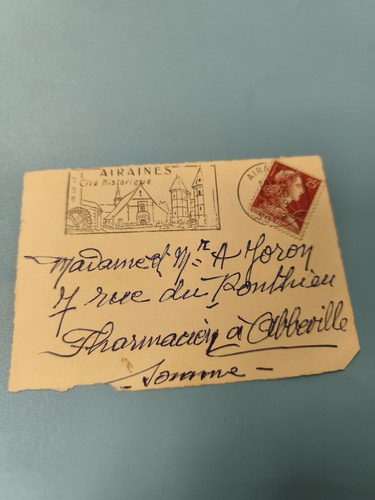 AIRAINES
Cité Historique
AIRA
25F
Madame et Mr A Joron
7 rue du Ponthieu
Pharmacien à Abbeville
- Somme -